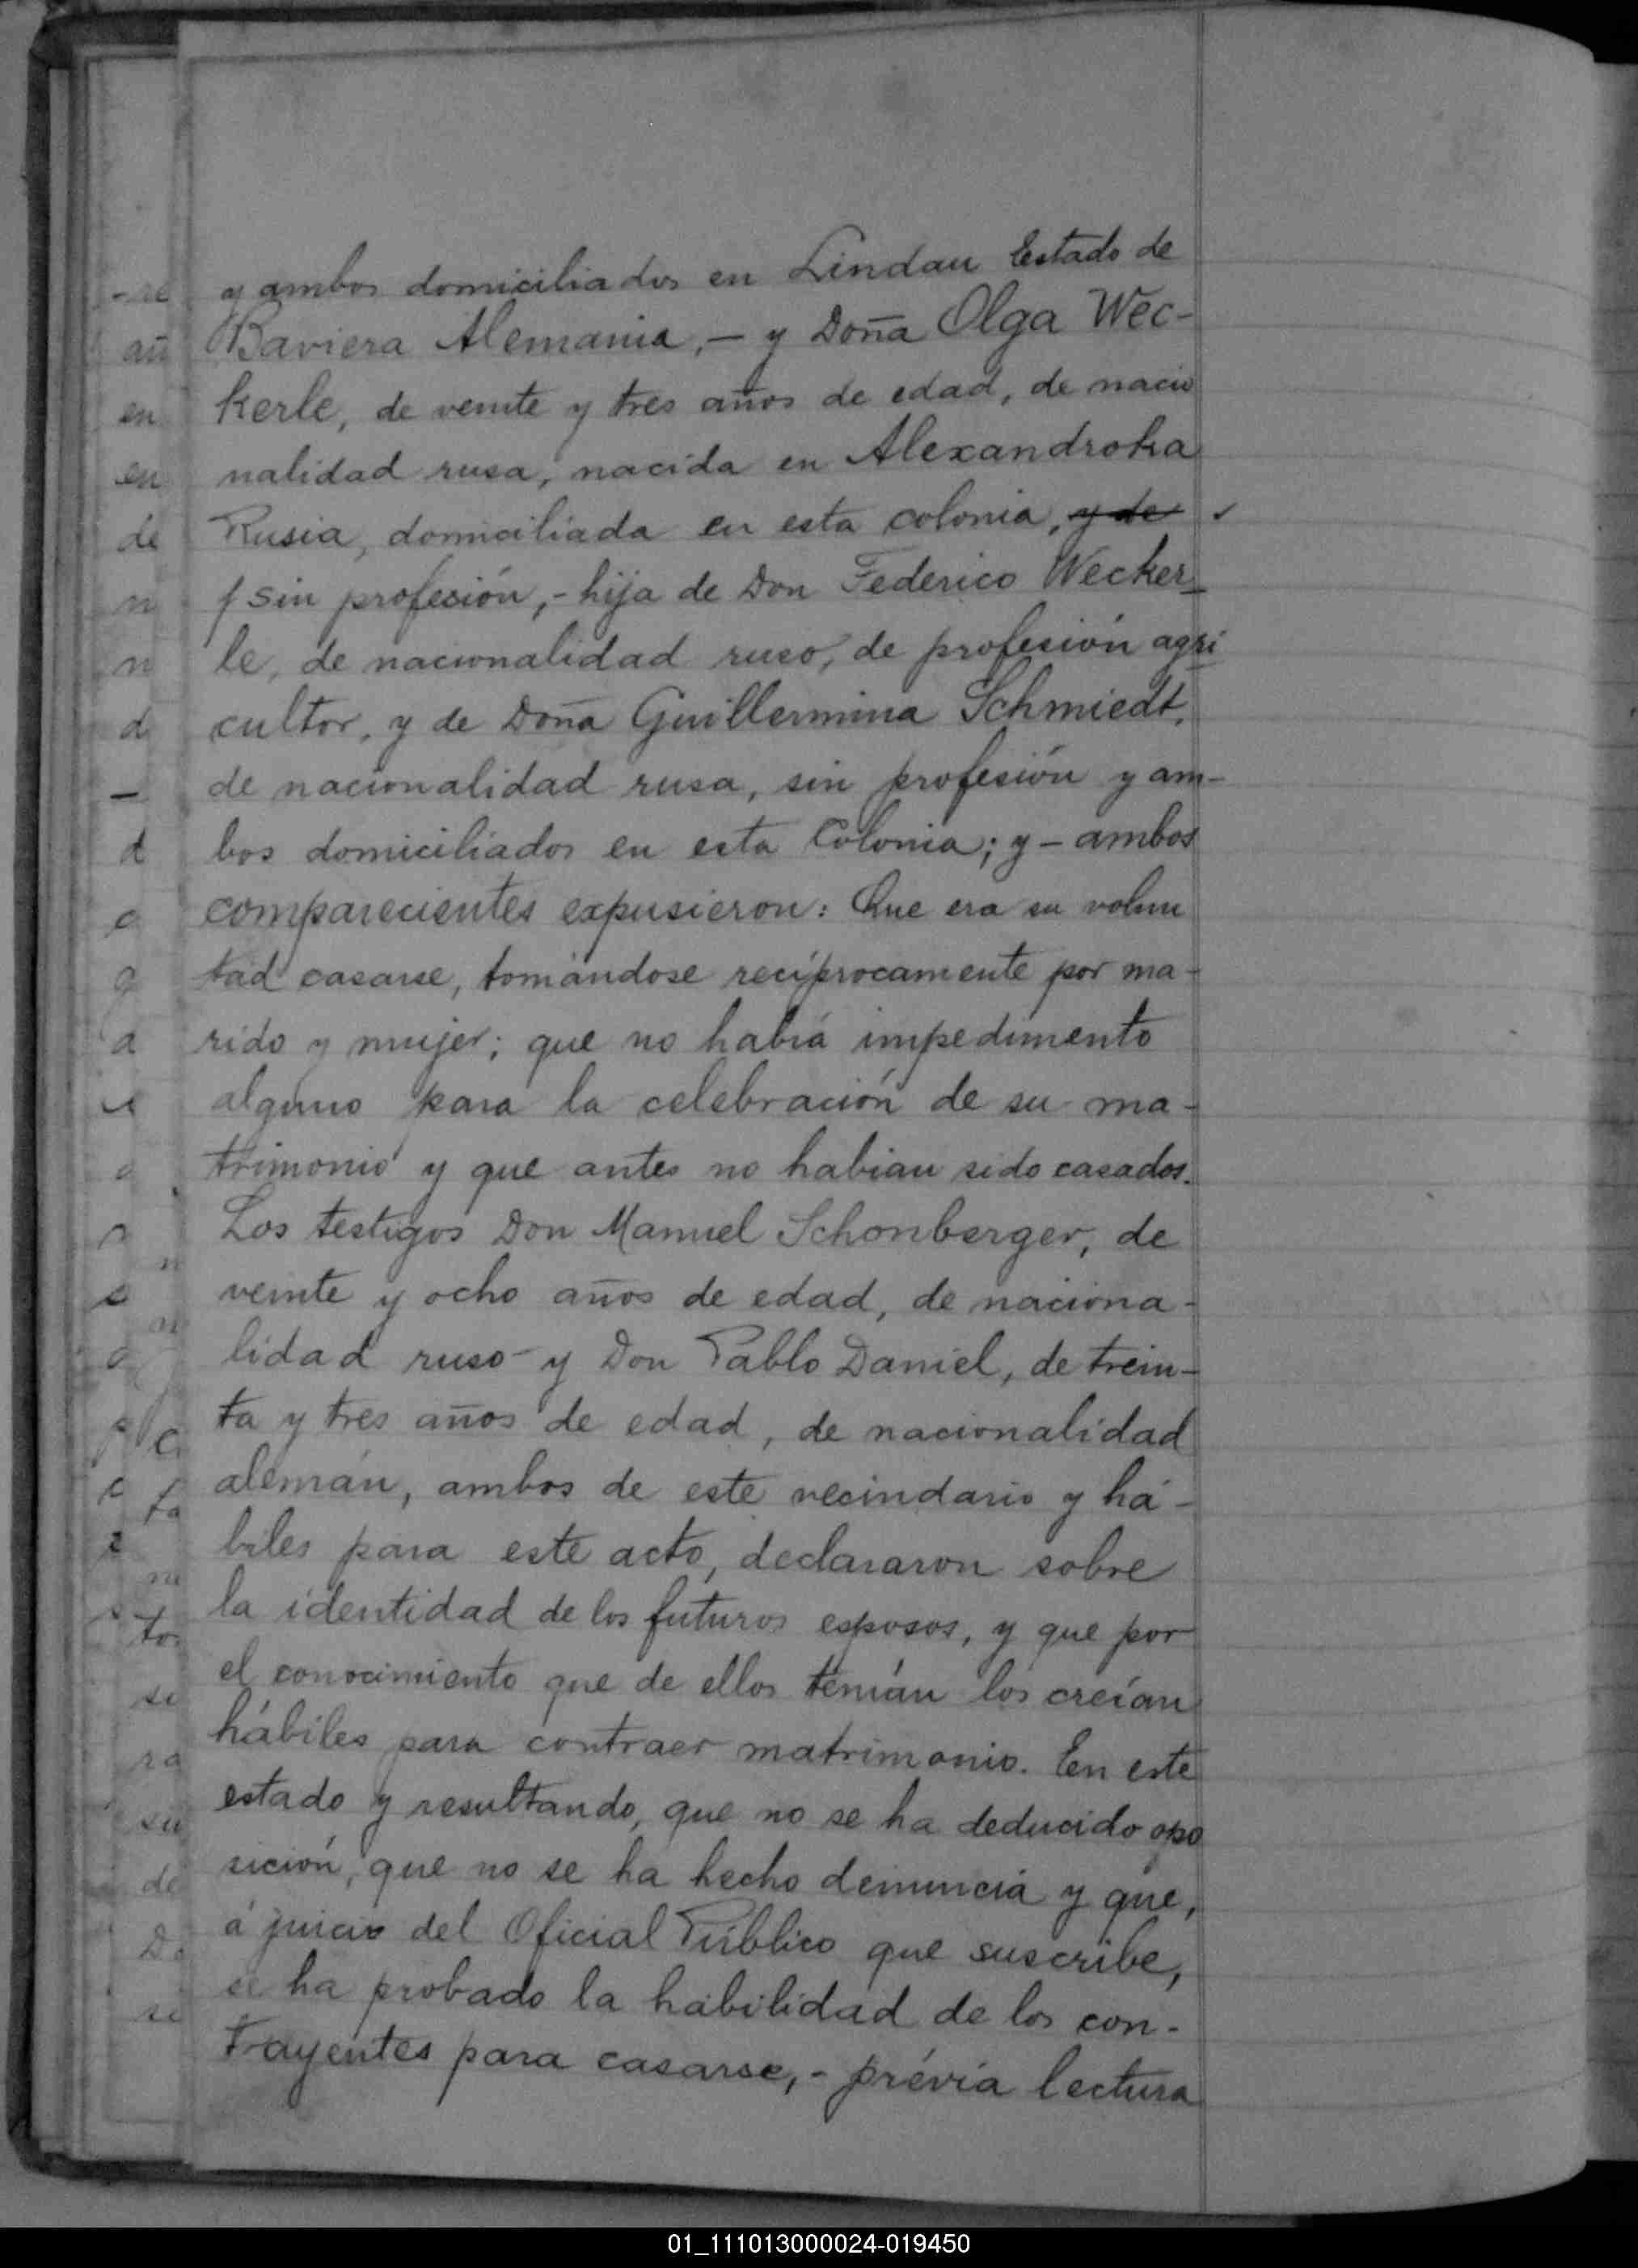 y ambos domiciliados en Lindau Estado de
Baviera Alemania,— y Doña Olga Wec-
kerle, de veinte y tres años de edad, de nacio
nalidad rusa, nacida en Alexandroka
Rusia, domiciliada en esta colonia, y de
sin profesión,- hija de Don Federico Wecker-
le, de nacionalidad ruso, de profesión agri
cultor, y de Doña Guillermina Schmiedt,
de nacionalidad rusa, sin profesión y am-
bos domiciliados en esta Colonia; y - ambos
comparecientes expusieron: Que era su volun
tad casarse, tomándose recíprocamente por ma-
rido y mujer; que no había impedimento
alguno para la celebración de su ma-
trimonio y que antes no habian sido casados.
Los testigos Don Manuel Schonberger, de
veinte y ocho años de edad, de naciona-
lidad ruso - y Don Pablo Daniel, de trein-
ta y tres años de edad, de nacionalidad
alemán, ambos de este vecindario y há-
biles para este acto, declararon sobre
la identidad de los futuros esposos, y que por
el conocimiento que de ellos tenían los creían
hábiles para contraer matrimonio. En este
estado y resultando, que no se ha deducido opo
sición, que no se ha hecho denuncia y que,
á juicio del Oficial Público que suscribe,
se ha probado la habilidad de los con-
trayentes para casarse,- prévia lectura
01_111013000024-019450